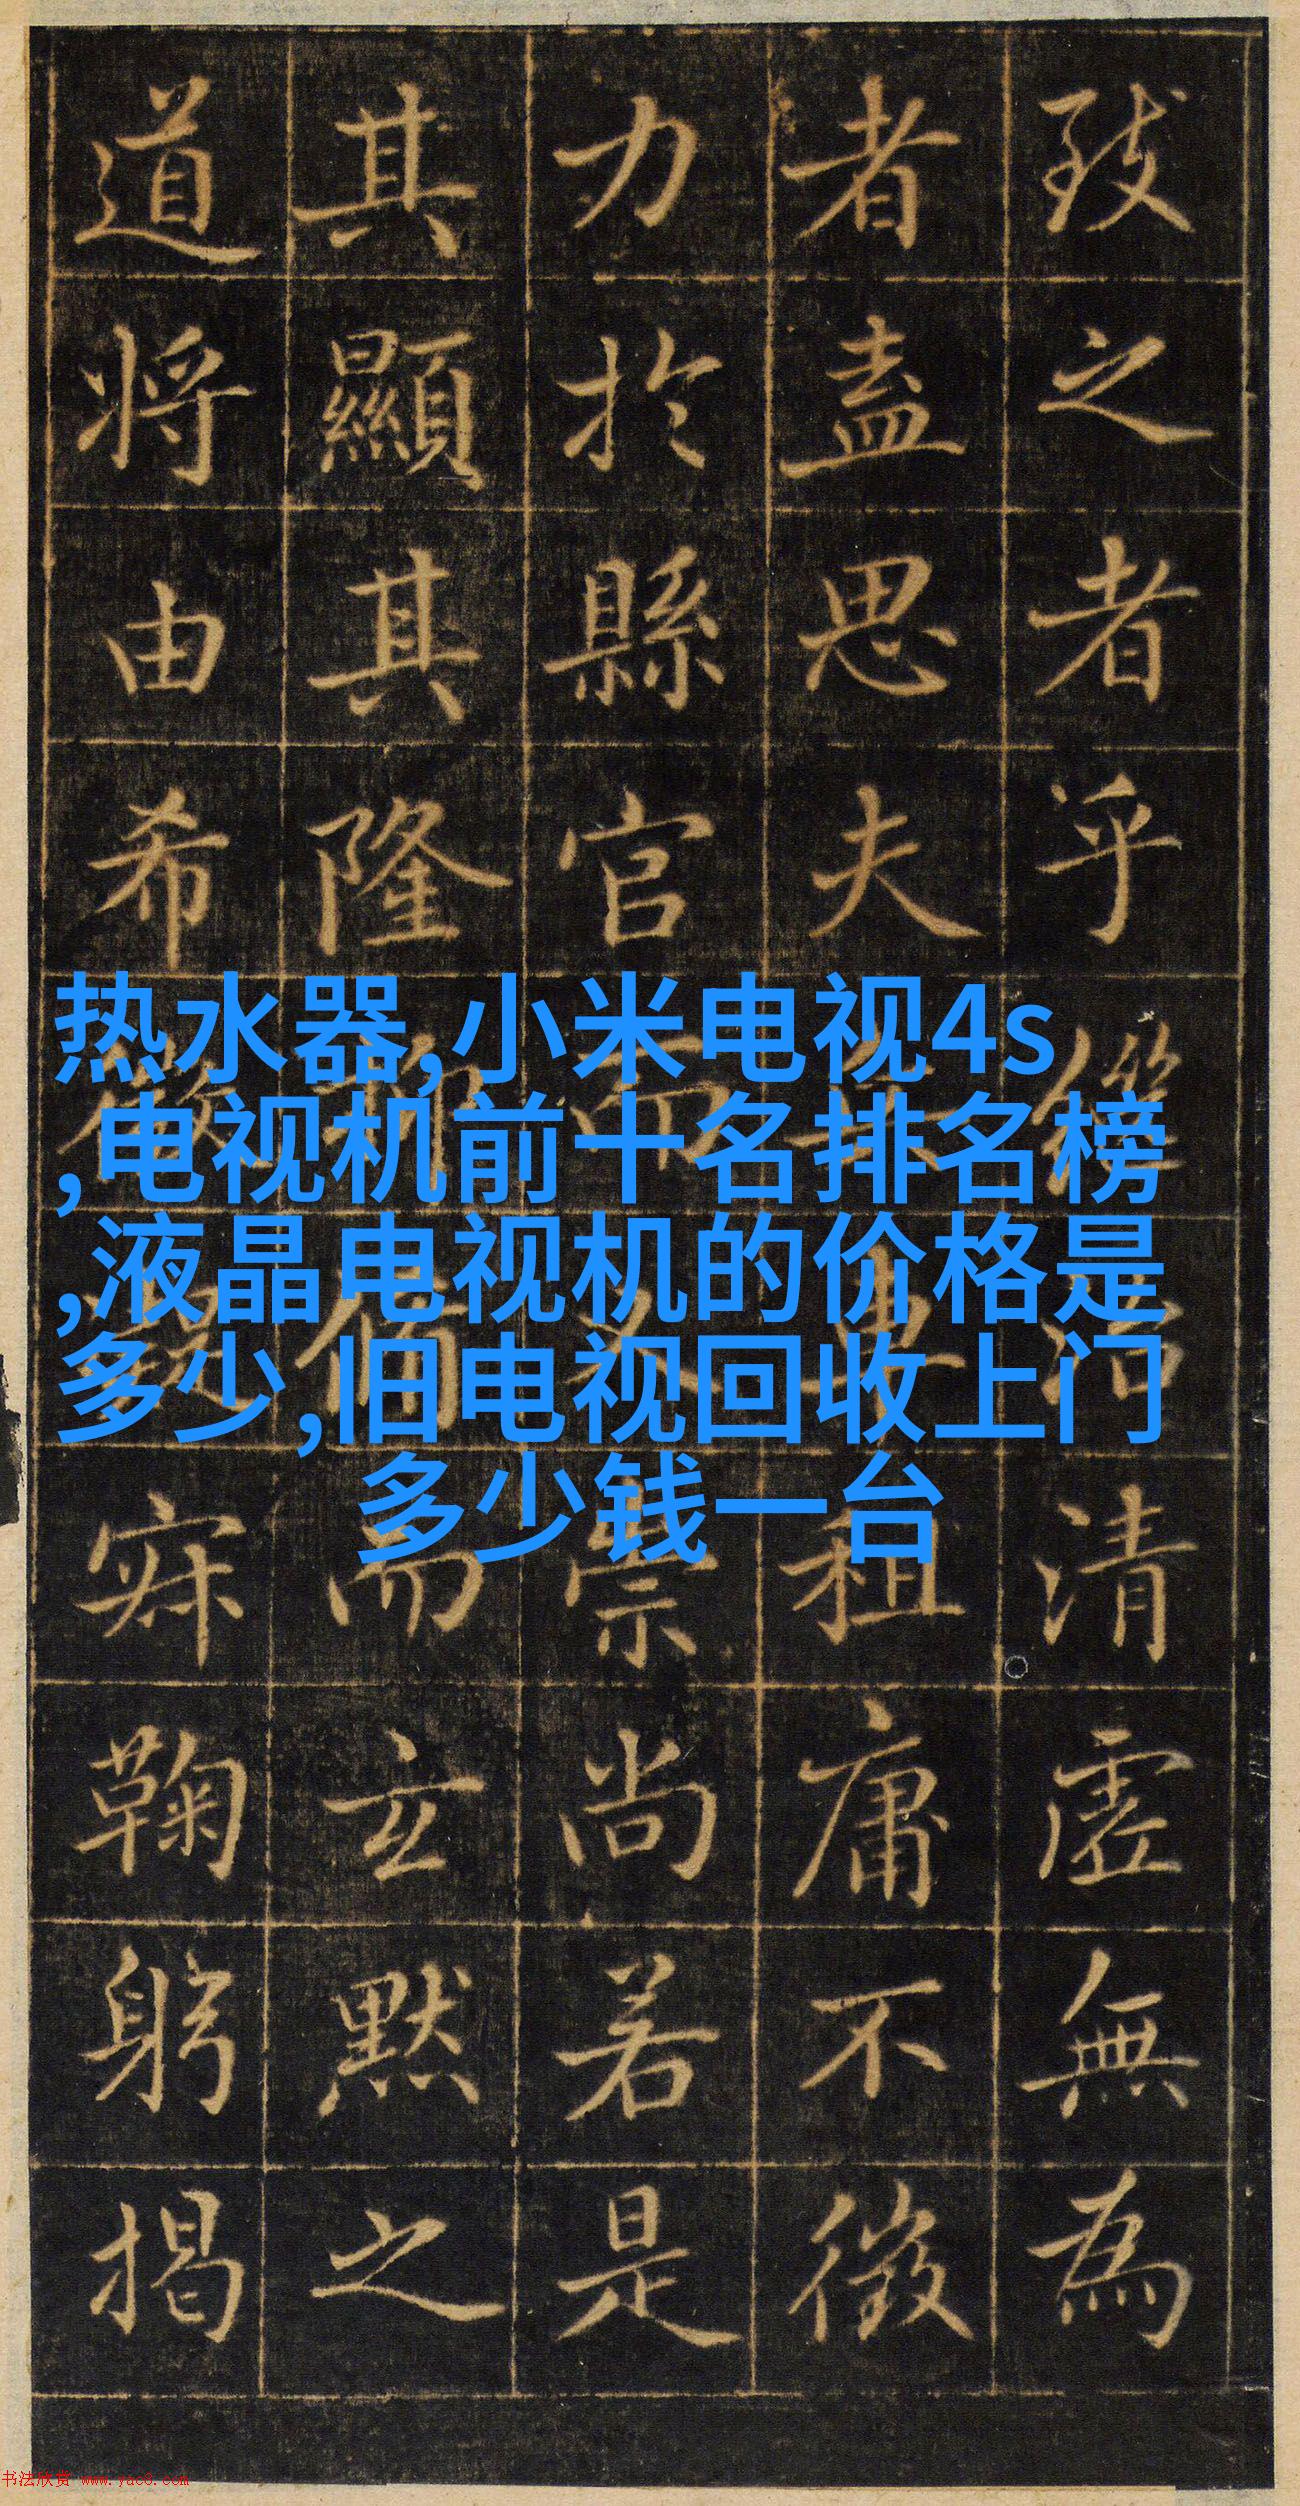 致之者乎治清虛無為
者盡思夫租庸不徵
力於縣官而崇尚若是
其顯其隆而玄默之
道將由希寐鞠躬揭
热水器,小米电视4s
,电视机前十名排名榜
,液晶电视机的价格是
多少,旧电视回收上门
多少钱一台
书法欣赏 www.yac8.com